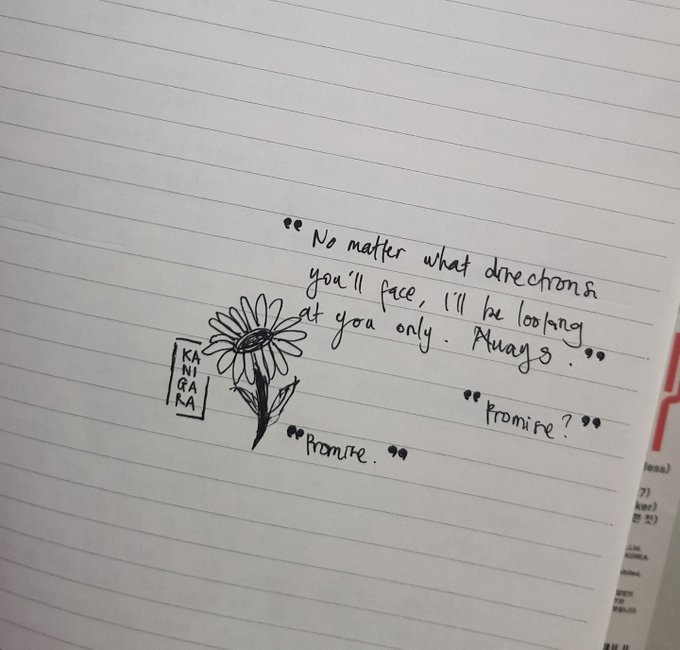 “No matter what directions
you'll face, I'll be looking
at you only. Always.”
“Promise?”
“Promise.”
KA
NI
GA
RA
less)
7)
ker)
KOREA.